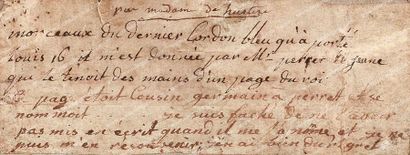 par madam de
morceaux du dernier Cordon bleu qu'a porté
Louis 16 il m'est donnée par Mr perret le jeune
qui le tenoit des mains d'un page du roi
ce page etoit Cousin germain a perret et se
nommoit je suis faché de ne l'avoir
pas mis en écrit quand il me l'a nomé et je ne
puis m'en resouvenir j'en ai bien du regret